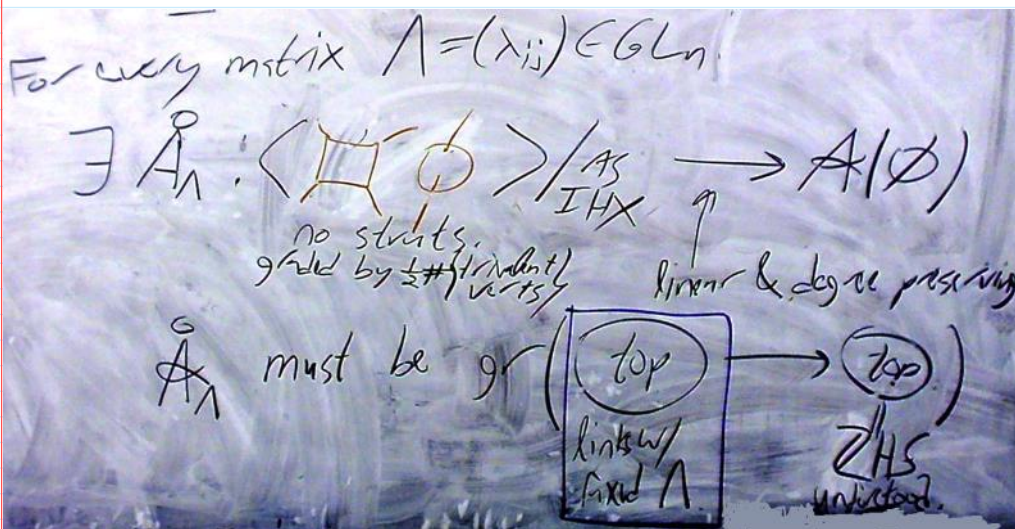 For every matrix Λ = (λij) ∈ GLn.
∃ Å_Λ : < > / AS IHX → A(∅)
no struts.
graded by ½#{trivalent verts}
linear & degree preserving
Å_Λ must be gr ( top → top )
links w/ fixed Λ
ZHS